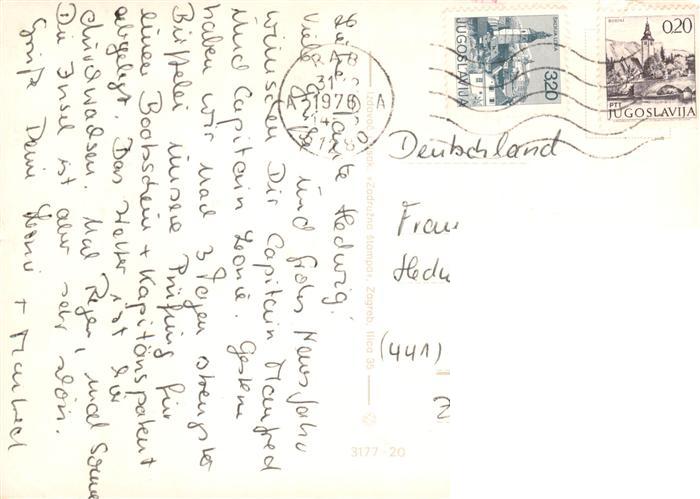 Liebe Tante Hedwig!
Viele Grüße und frohes Neues Jahr
wünschen Dir Capitain Manfred
und Capitain Leonie. Gestern
haben wir nach 3 Tagen strengster
Büffelei unsere Prüfung für
einen Bootsschein + Kapitänspatent
abgelegt. Das Wetter ist hier
durchwachsen. Mal Regen, mal Sonne
Die Insel ist aber sehr schön.
Grüße Deine Leonie + Manfred
Izdavač: »Zadružna štampa«, Zagreb, Ilica 35
3177-20
RAB
31
1976
A A
ŠKOFJA LOKA
JUGOSLAVIJA
3.20
BOHINJ
0,20
PTT
JUGOSLAVIJA
Deutschland
Frau
Hedw
(441)